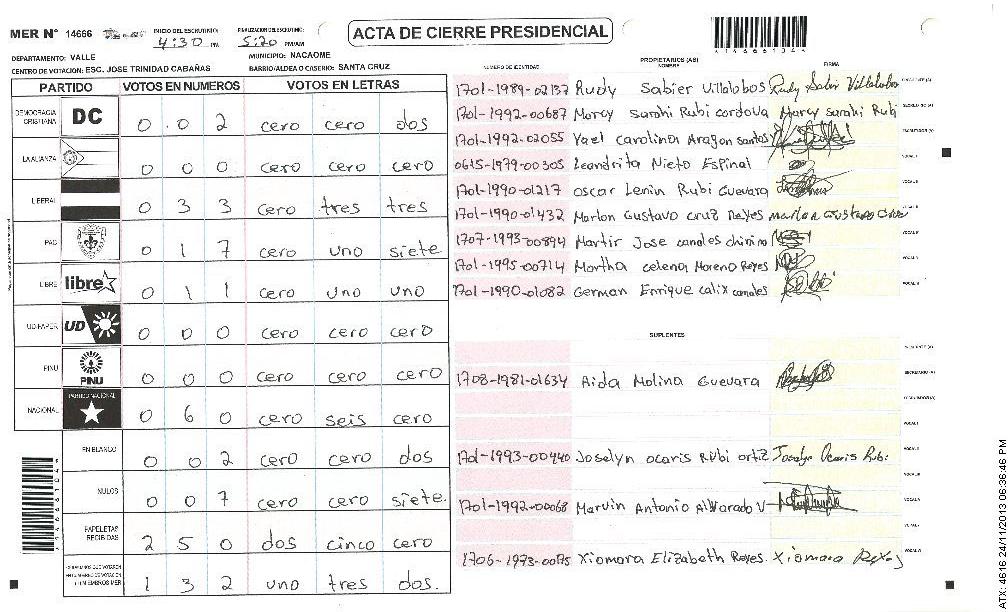 MER N° 14666 INICIO DEL ESCRUTINIO: 4:30 PM FINALIZACION DEL ESCRUTINIO: 5:20 PM/AM
ACTA DE CIERRE PRESIDENCIAL
DEPARTAMENTO: VALLE MUNICIPIO: NACAOME
CENTRO DE VOTACION: ESC. JOSE TRINIDAD CABAÑAS BARRIO/ALDEA O CASERIO: SANTA CRUZ
PARTIDO VOTOS EN NUMEROS VOTOS EN LETRAS
DEMOCRACIA CRISTIANA DC 0 0 2 cero cero dos
LA ALIANZA 0 0 0 cero cero cero
LIBERAL 0 3 3 cero tres tres
PAC 0 1 7 cero uno siete
LIBRE libre 0 1 1 cero uno uno
UD-FAPER UD 0 0 0 cero cero cero
PINU PINU 0 0 0 cero cero cero
NACIONAL PARTIDO NACIONAL 0 6 0 cero seis cero
EN BLANCO 0 0 2 cero cero dos
NULOS 0 0 7 cero cero siete.
PAPELETAS RECIBIDAS 2 5 0 dos cinco cero
1 3 2 uno tres dos.
NUMERO DE IDENTIDAD PROPIETARIOS (AS) NOMBRE FIRMA
1701-1989-02137 Rudy Sabier Villalobos Rudy Sabier Villalobos
1701-1992-00687 Mercy sarahi Rubi cordova Mercy sarahi Rubi
1701-1992-02055 Yael carolina Aragon santos
0615-1979-00305 Leandrita Nieto Espinal
1701-1990-01217 oscar Lenin Rubi Guevara
1701-1990-01432 Marlon Gustavo cruz Reyes marlon Gustavo Cruz
1707-1993-00894 Martir Jose canales chirino
1701-1995-00714 Martha celena Moreno Reyes
1701-1990-01082 German Enrique calix canales
SUPLENTES
1708-1981-01634 Aida Molina Guevara
1701-1993-00440 Joselyn ocaris Rubi ortiz Joselyn Ocaris Rubi
1701-1992-00068 Marvin Antonio Alvarado V
1706-1973-0075 Xiomara Elizabeth Reyes. Xiomara Reyes
ATX: 4616 24/11/2013 06:36:46 PM